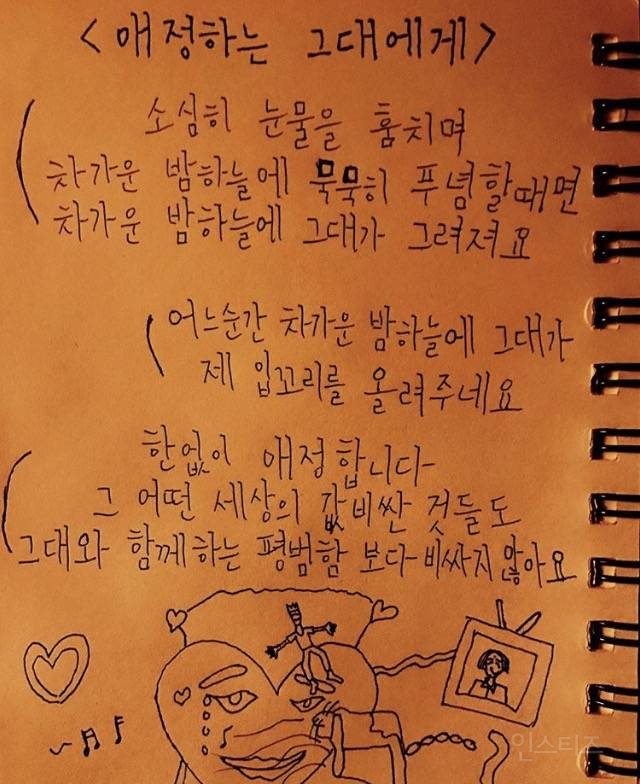 <애정하는 그대에게>
소심히 눈물을 훔치며
차가운 밤하늘에 묵묵히 푸념할때면
차가운 밤하늘에 그대가 그려져요
어느순간 차가운 밤하늘에 그대가
제 입꼬리를 올려주네요
한없이 애정합니다
그 어떤 세상의 값비싼 것들도
그대와 함께하는 평범함 보다 비싸지 않아요
인스티즈